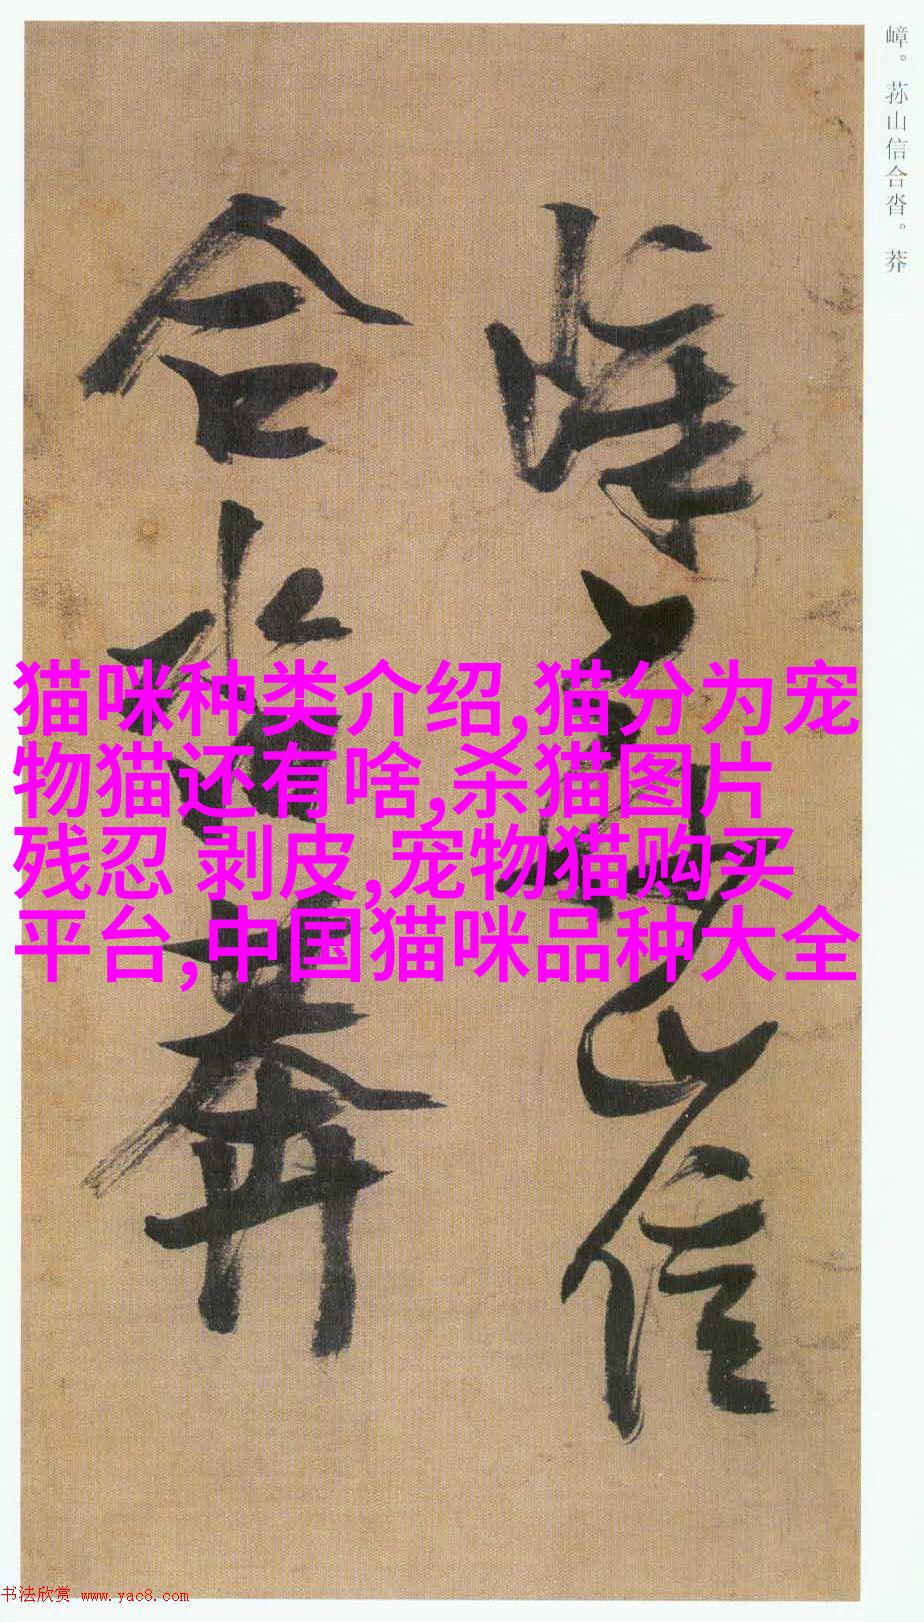 嶂。荪山信合沓。莽
嶂荪山信
合沓莽
猫咪种类介绍,猫分为宠
物猫还有啥,杀猫图片
残忍 剥皮,宠物猫购买
平台,中国猫咪品种大全
书法欣赏 www.yac8.com